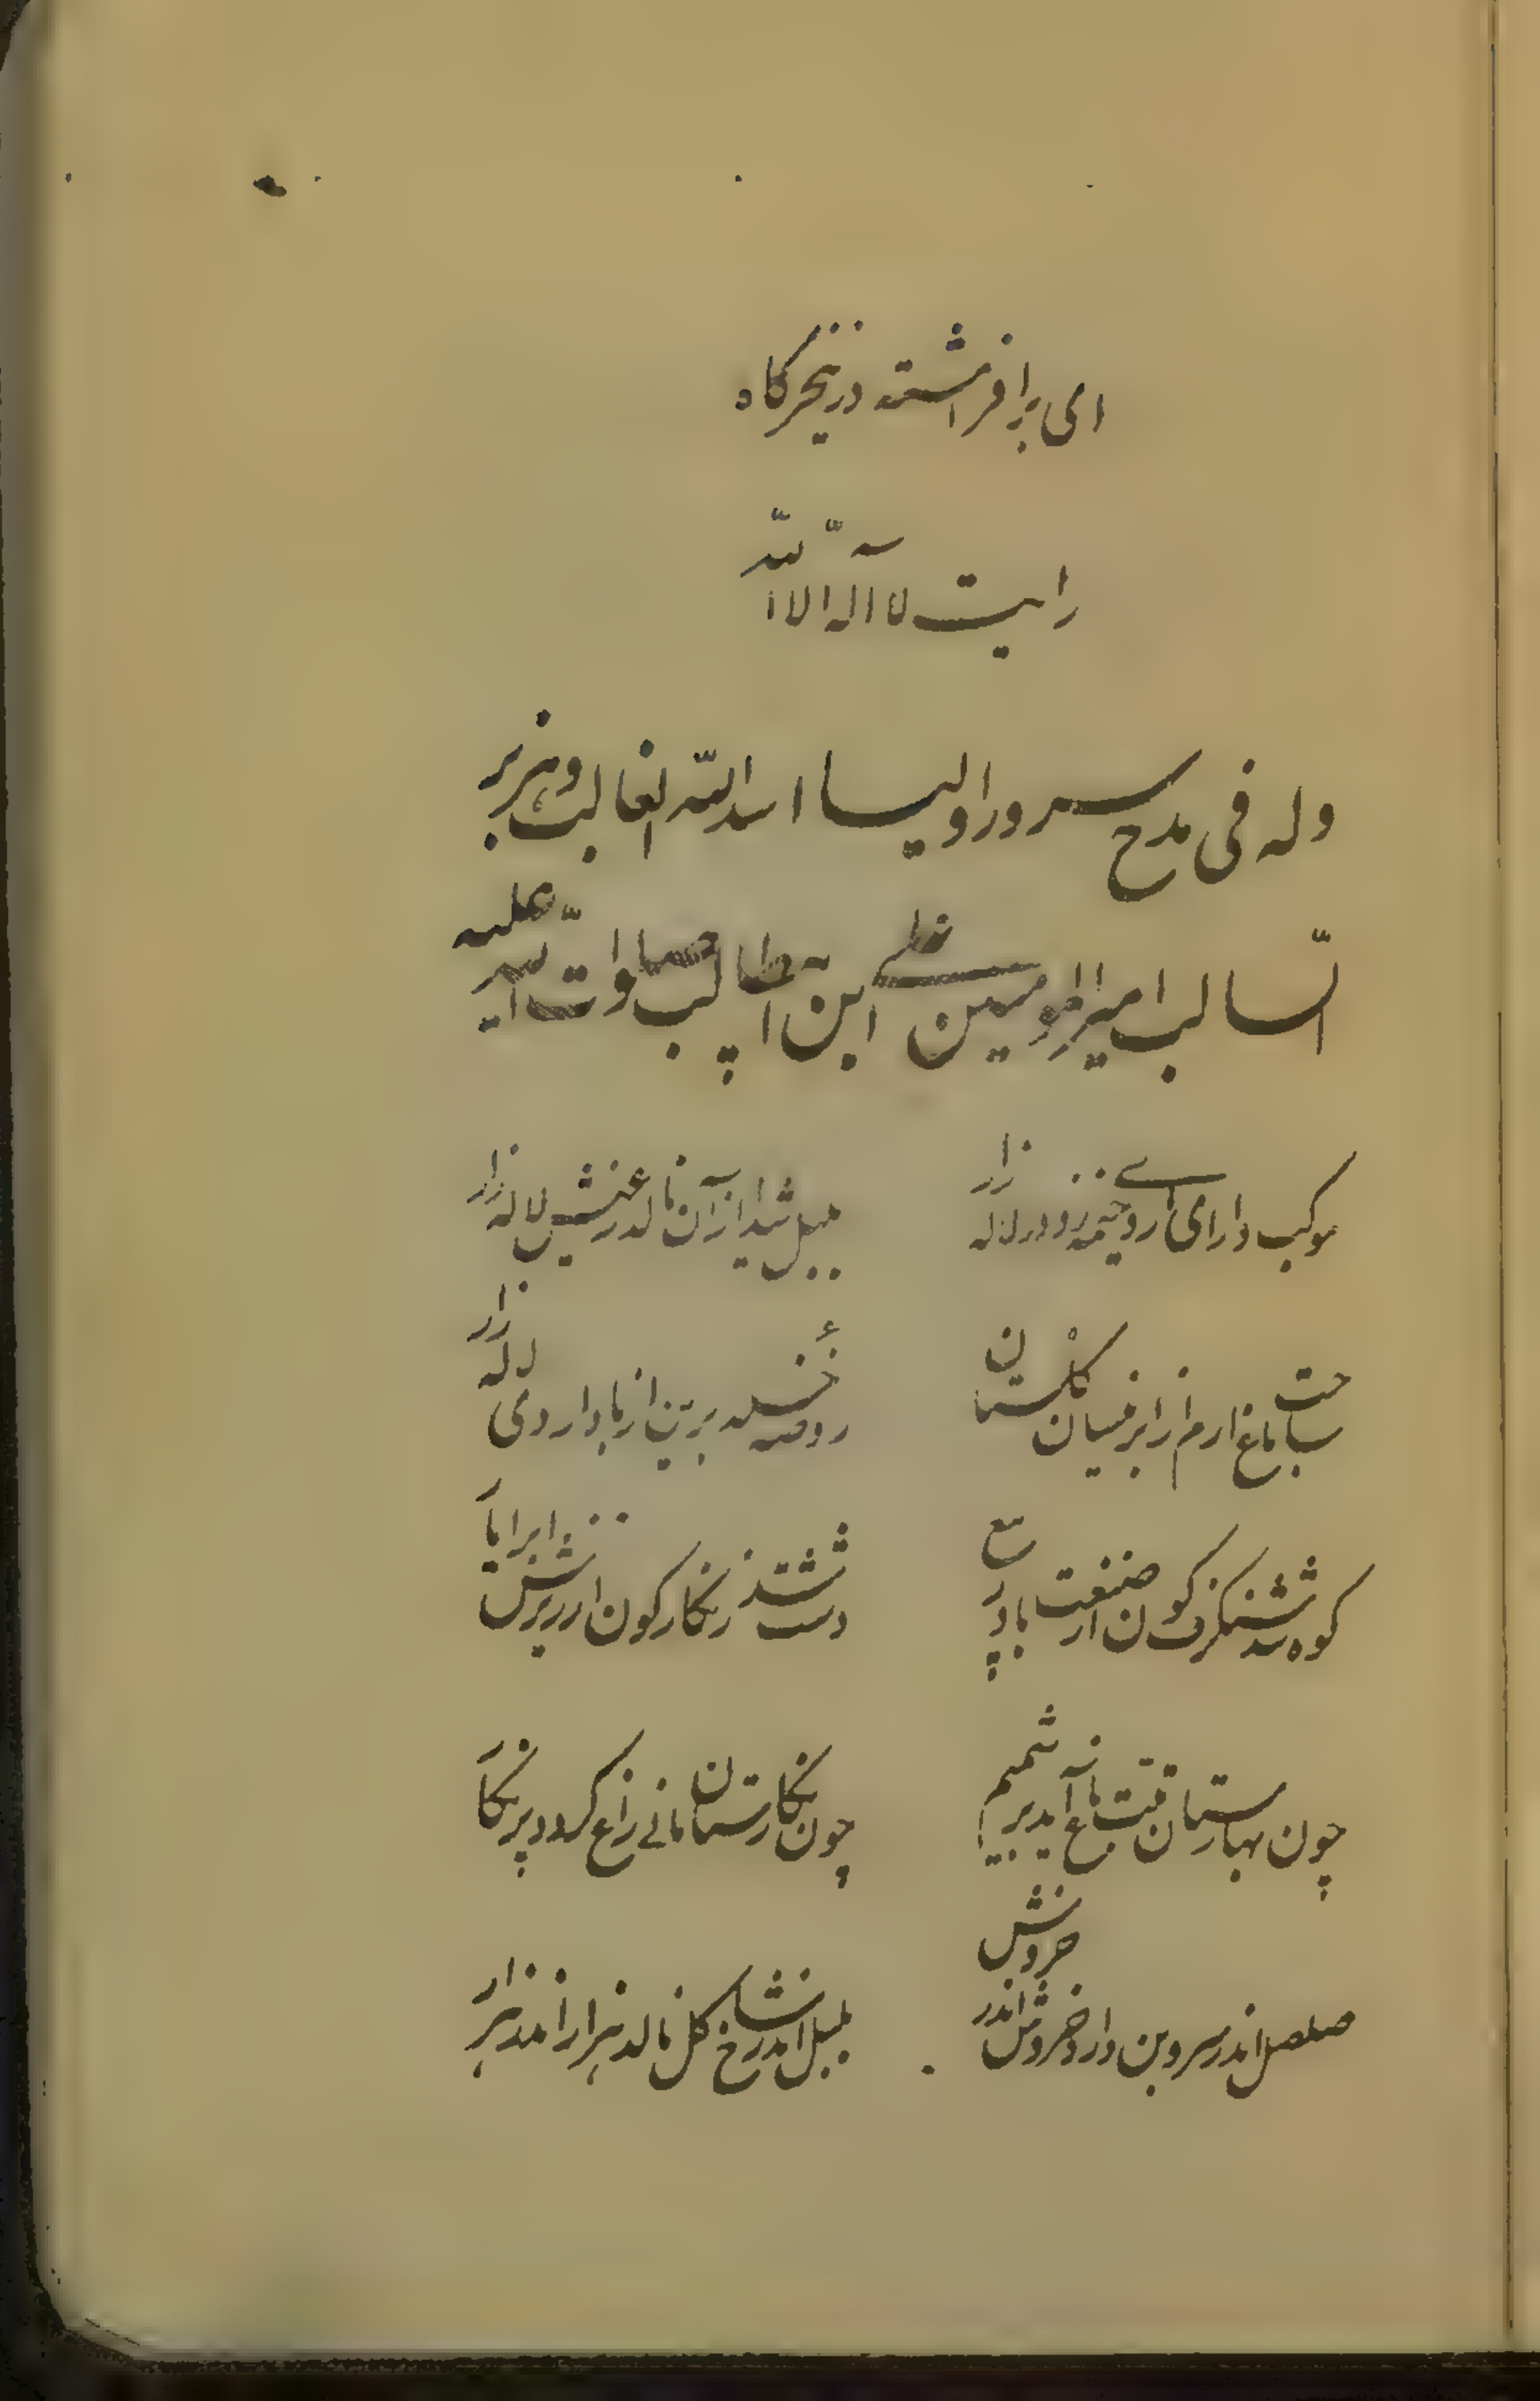 ای برافراشته در نه خرگاه
رایت لا اله الا الله
وله فی مدح سرور اولیا اسد الله الغالب و هزبر
السالب امیرالمومنین علی ابن ابی طالب صلوات الله علیه
موکب دارای زد در لاله زار
بلبل شیدا از آن نالد لاله زار
ساحت باغ ارم از ابر نیسان گلستان
روضهٔ خلد برین از باد اردی لاله زار
کوه شد شنگرف گون از صنعت باد ربیع
دشت شد زنگارگون از ریزش ابر ایار
چون بهارستان تبت باغ آید پر شمیم
چون نگارستان مانی راغ گردد پر نگار
صلصل اندر سروبن دارد خروش اندر خروش
بلبل اندر شاخ گل نالد هزار اندر هزار